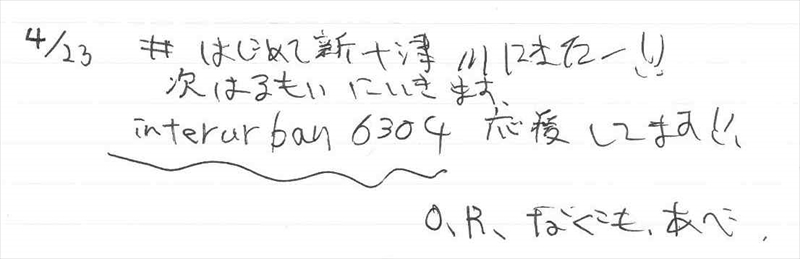 4/23 # はじめて新十津川にきたー!!
次はるもいにいきます。
interurban 6304 応援してます!!
O、R、なぐも、あべ.